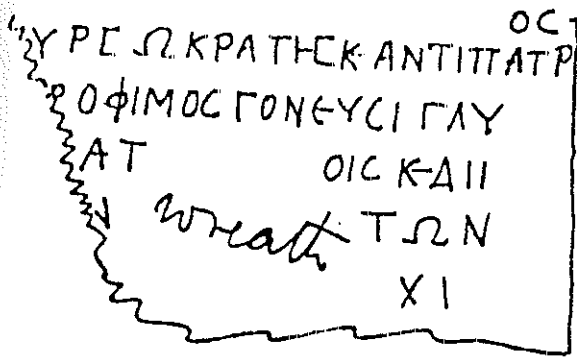 ΟϹ
ΥΡ ϹΩΚΡΑΤΗϹ Κ ΑΝΤΙΠΑΤΡ
ΡΟΦΙΜΟϹ ΓΟΝΕΥϹΙ ΓΛΥ
ΑΤ ΟΙϹ Κ ΔΙΙ
wreath ΤΩΝ
ΧΙ